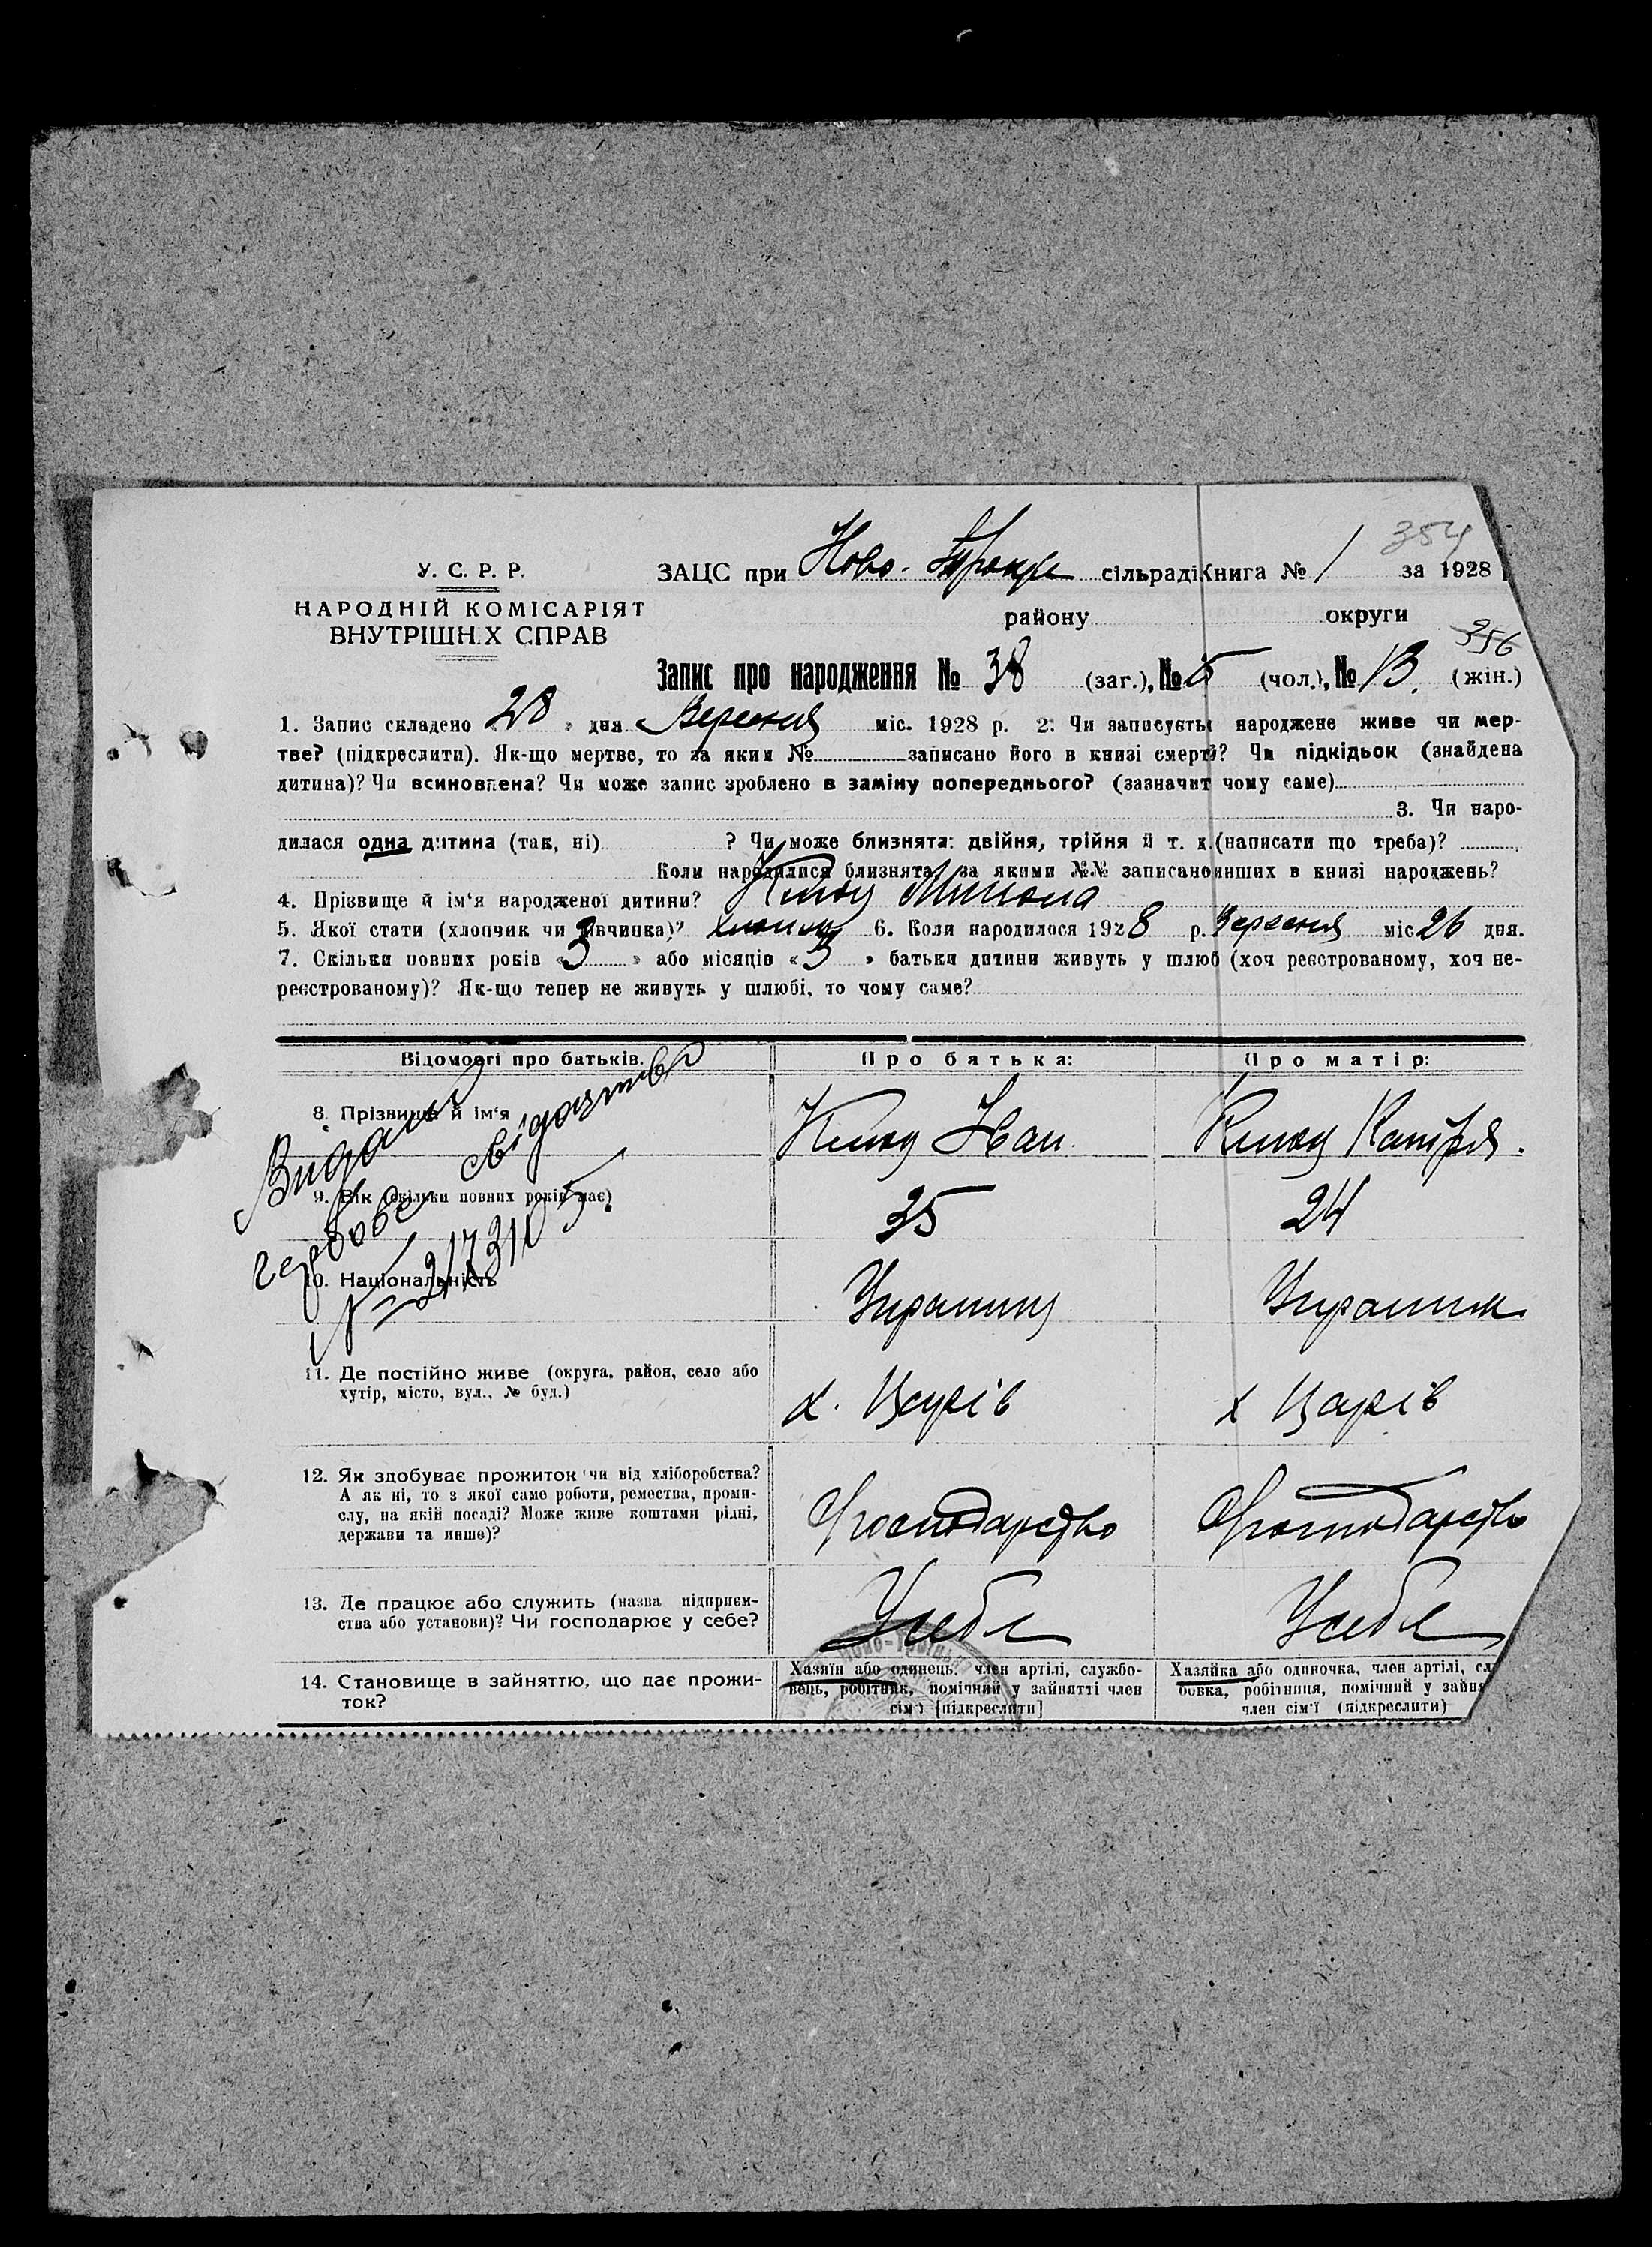 354
У. С. Р. Р.
НАРОДНІЙ КОМІСАРІЯТ
ВНУТРІШН.Х СПРАВ
ЗАЦС при Ново- сільраді Книга № 1 за 1928
району округи
356
Запис про народження № 38 (заг.), № 5 (чол.), № 13. (жін.)
1. Запис складено 28 » дня Вересня міс. 1928 р. 2. Чи записується народжене живе чи мер-
тве? (підкреслити). Як-що мертве, то за яким № записано його в книзі смерти? Чи підкідьок (знайдена
дитина)? Чи всиновлена? Чи може запис зроблено в заміну попереднього? (зазначит чому саме)
3. Чи наро-
дилася одна дитина (так, ні) ? Чи може близнята: двійня, трійня й т. д. (написати що треба)?
Коли народилися близнята, за якими №№ записано инших в книзі народжень?
4. Прізвище й ім‘я народженої дитини? Клюц Микола
5. Якої стати (хлопчик чи дівчинка)? хлопчик 6. Коли народилося 1928 р. Вересня міс 26 дня.
7. Скільки повних років « 3 » або місяців « 3 » батьки дитини живуть у шлюб (хоч реєстрованому, хоч не-
реєстрованому)? Як-що тепер не живуть у шлюбі, то чому саме?
Відомості про батьків. Про батька: Про матір:
8. Прізвище й ім‘я Клюц Іван. Клюц Катря.
Видано
гербове свідоцтво
№ 2173105
9. Вік (скільки повних років має) 35 24
10. Національність Українець Українка
11. Де постійно живе (округа, район, село або
хутір, місто, вул., № буд.) х. Царів х Царів
12. Як здобуває прожиток чи від хліборобства?
А як ні, то з якої саме роботи, ремества, проми-
слу, на якій посаді? Може живе коштами рідні,
держави та инше)? Господарство Господарство
13. Де працює або служить (назва підприєм-
ства або установи)? Чи господарює у себе? Усебе Усебе
14. Становище в зайняттю, що дає прожи-
ток?
Хазяїн або одинець, член артілі, службо-
вець, робітник, помічний у зайнятті член
сім‘ї [підкреслити]
Хазяйка або одиночка, член артілі, сл
бовка, робітниця, помічний у зайня
член сім‘ї (підкреслити)